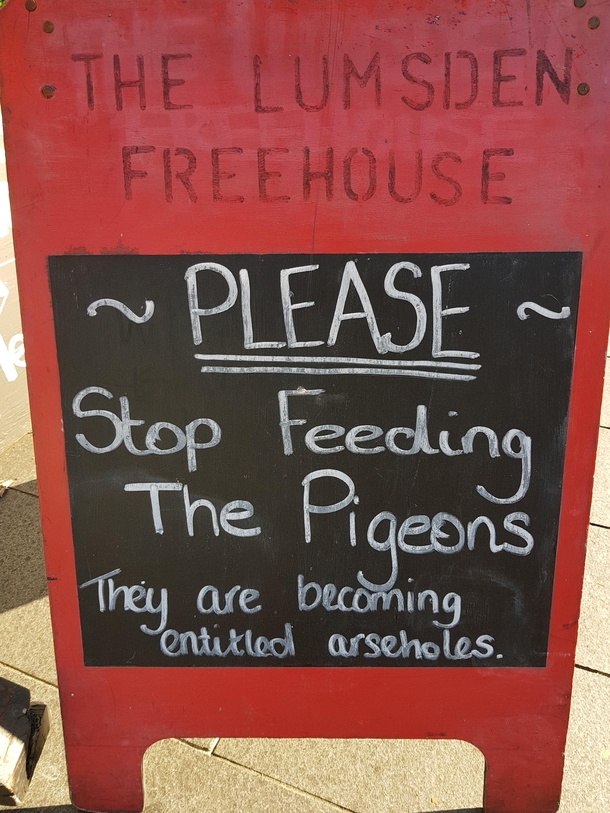 THE LUMSDEN
FREEHOUSE
~ PLEASE ~
Stop Feeding
The Pigeons
They are becoming
entitled arseholes.